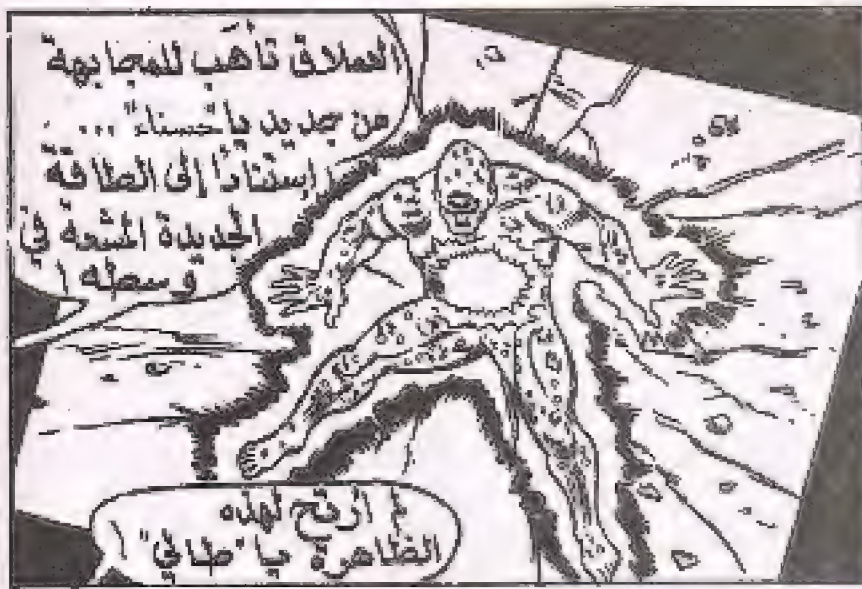 العملاق تأهب للمجابهة
من جديد يا "حسناء" ...
استنادًا إلى الطاقة
الجديدة المشعة في
وسطه !
لم أرتح لهذه
الظاهرة يا "طالي" !